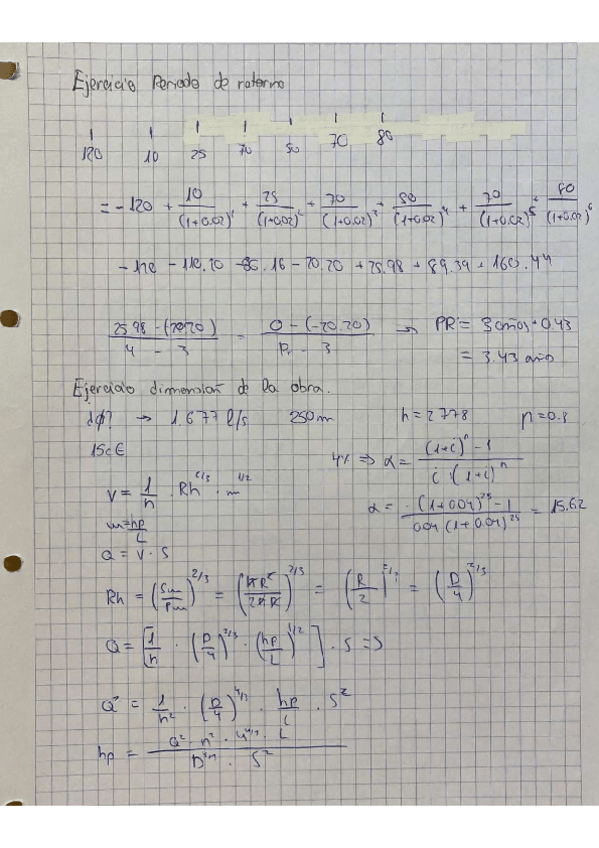 Ejercicio Periodo de retorno
120 10 25 70 50 70 80
= -120 + 10/(1+0.02)^1 + 25/(1+0.02)^2 + 70/(1+0.02)^3 + 50/(1+0.02)^4 + 70/(1+0.02)^5 + 80/(1+0.02)^6
-120 -110.20 -86.16 -20.20 + 25.98 + 89.39 + 160.44
25.98-(-20.20)/4-3 = 0-(-20.20)/Pr-3 → PR = 3 años + 0.43
= 3.43 año
Ejercicio dimensión de la obra.
dϕ? → 1.677 l/s 250m h=2778 η=0.8
15c€
4% ⇒ α = (1+i)^n - 1/i·(1+i)^n
V = 1/n · Rh^2/3 · m^1/2
α = (1+0.04)^25 - 1/0.04(1+0.04)^25 = 15.62
m=hp/L
Q = V·S
Rh = (Sm/Pm)^2/3 = (πR²/2πR)^2/3 = (R/2)^2/3 = (D/4)^2/3
Q = [1/n · (D/4)^2/3 · (hp/L)^1/2] · S ⇒
Q² = 1/n² · (D/4)^4/3 · hp/L · S²
hp = Q² · n² · 4^4/3 · L/D^4/3 · S²